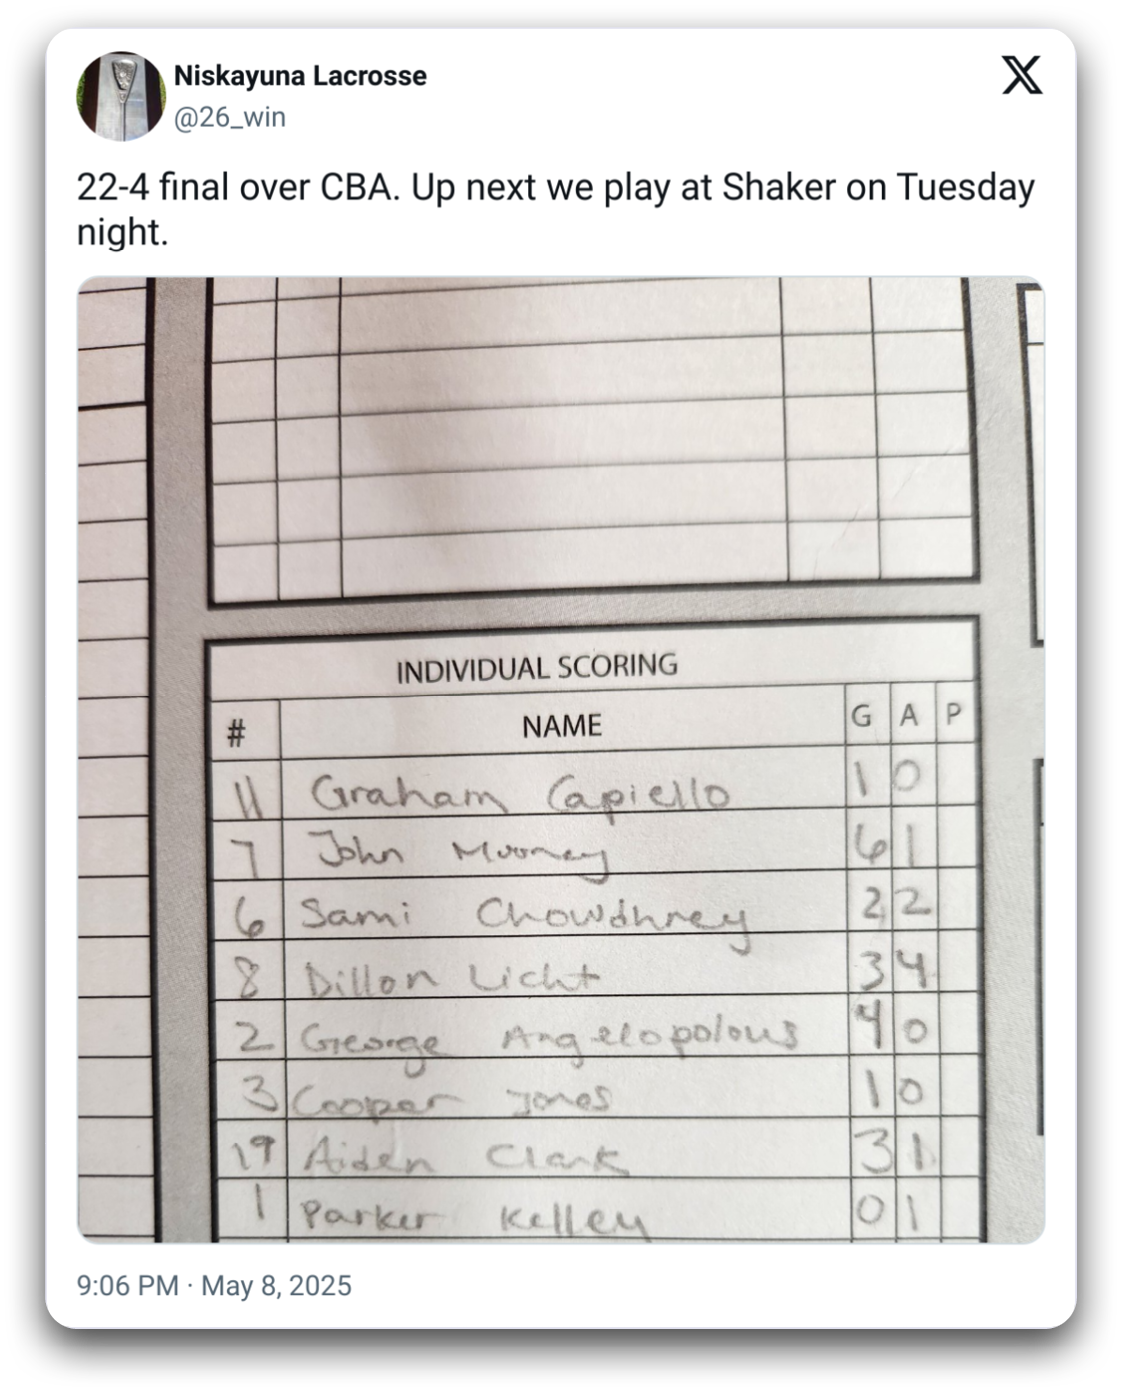 Niskayuna Lacrosse
@26_win
22-4 final over CBA. Up next we play at Shaker on Tuesday
night.
INDIVIDUAL SCORING
# NAME G A P
11 Graham Capiello 1 0
7 John Mooney 6 1
6 Sami Chowdhrey 2 2
8 Dillon Licht 3 4
2 George Angelopolous 4 0
3 Cooper Jones 1 0
19 Aiden Clark 3 1
1 Parker Kelley 0 1
9:06 PM · May 8, 2025